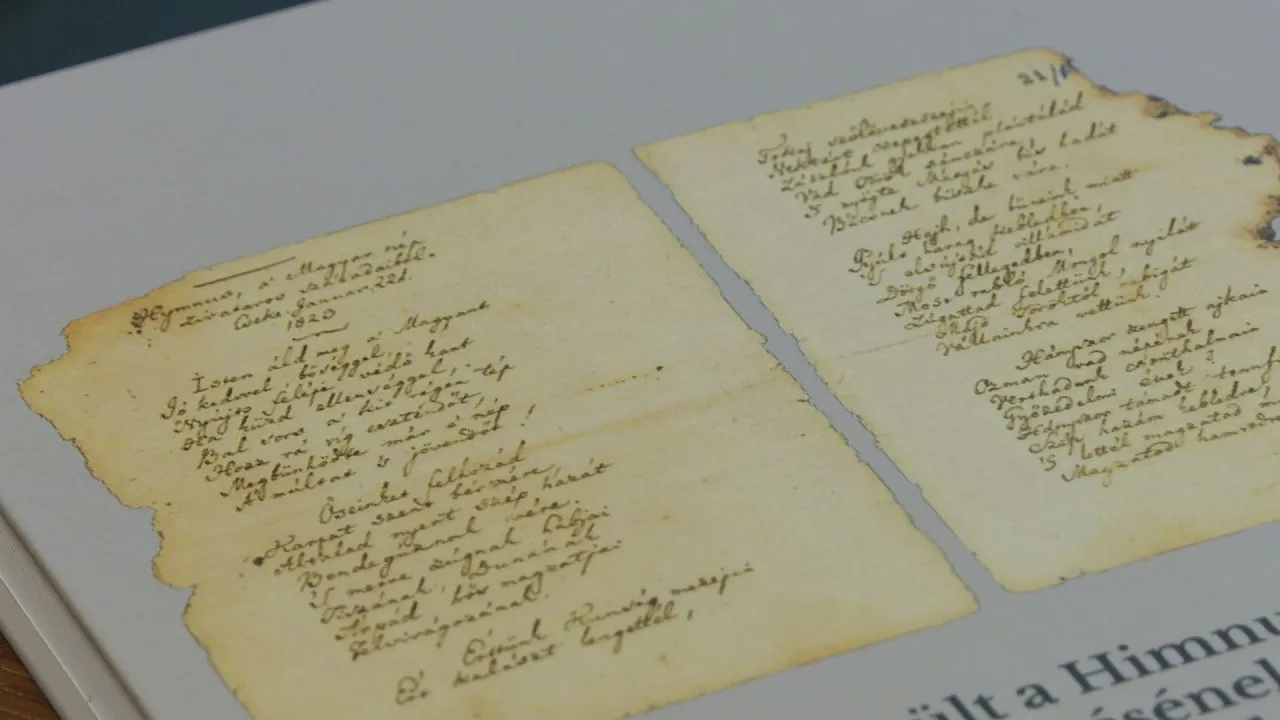 21/
Hymnus, a' Magyar nép
zivataros századaiból.
Cseke. Januar. 22d.
1823
Isten áld meg a' Magyart
Jó kedvvel, bőséggel,
Nyújts feléje védő kart
Ha küzd ellenséggel;
Bal sors a' kit régen tép
Hozz rá víg esztendőt,
Megbünhödte már a' nép
A' multat 's jövendőt!
Őseinket felhozád
Kárpát szent bérczére,
Általad nyert szép hazát
Bendegúznak vére.
'S merre zúgnak habjai
Tiszának, Dunának
Árpád hős magzatjai
Felvirágozának.
Értünk Kunság mezein
Ért kalászt lengettél,
Tokaj szőlővesszein
Nektárt csepegtettél
Zászlónk gyakran plántálád
Vad Török sánczára,
'S nyögte Mátyás bús hadát
Bécsnek büszke vára.
Hajh, de bűneink miatt
Gyúlt harag kebledben,
'S elsujtád villámidat
Dörgő fellegedben,
Most rabló Mongol nyilát
Zúgattad felettünk,
Majd Töröktől rabigát
Vállainkra vettünk.
Hányszor zengett ajkain
Ozman vad népének
Vert hadunk csonthalmain
Győzedelmi ének?
Hányszor támadt tenfi
Szép hazám kebledre,
'S lettél magzatod m
Magzatod hamvved
ült a Himnu
ésének